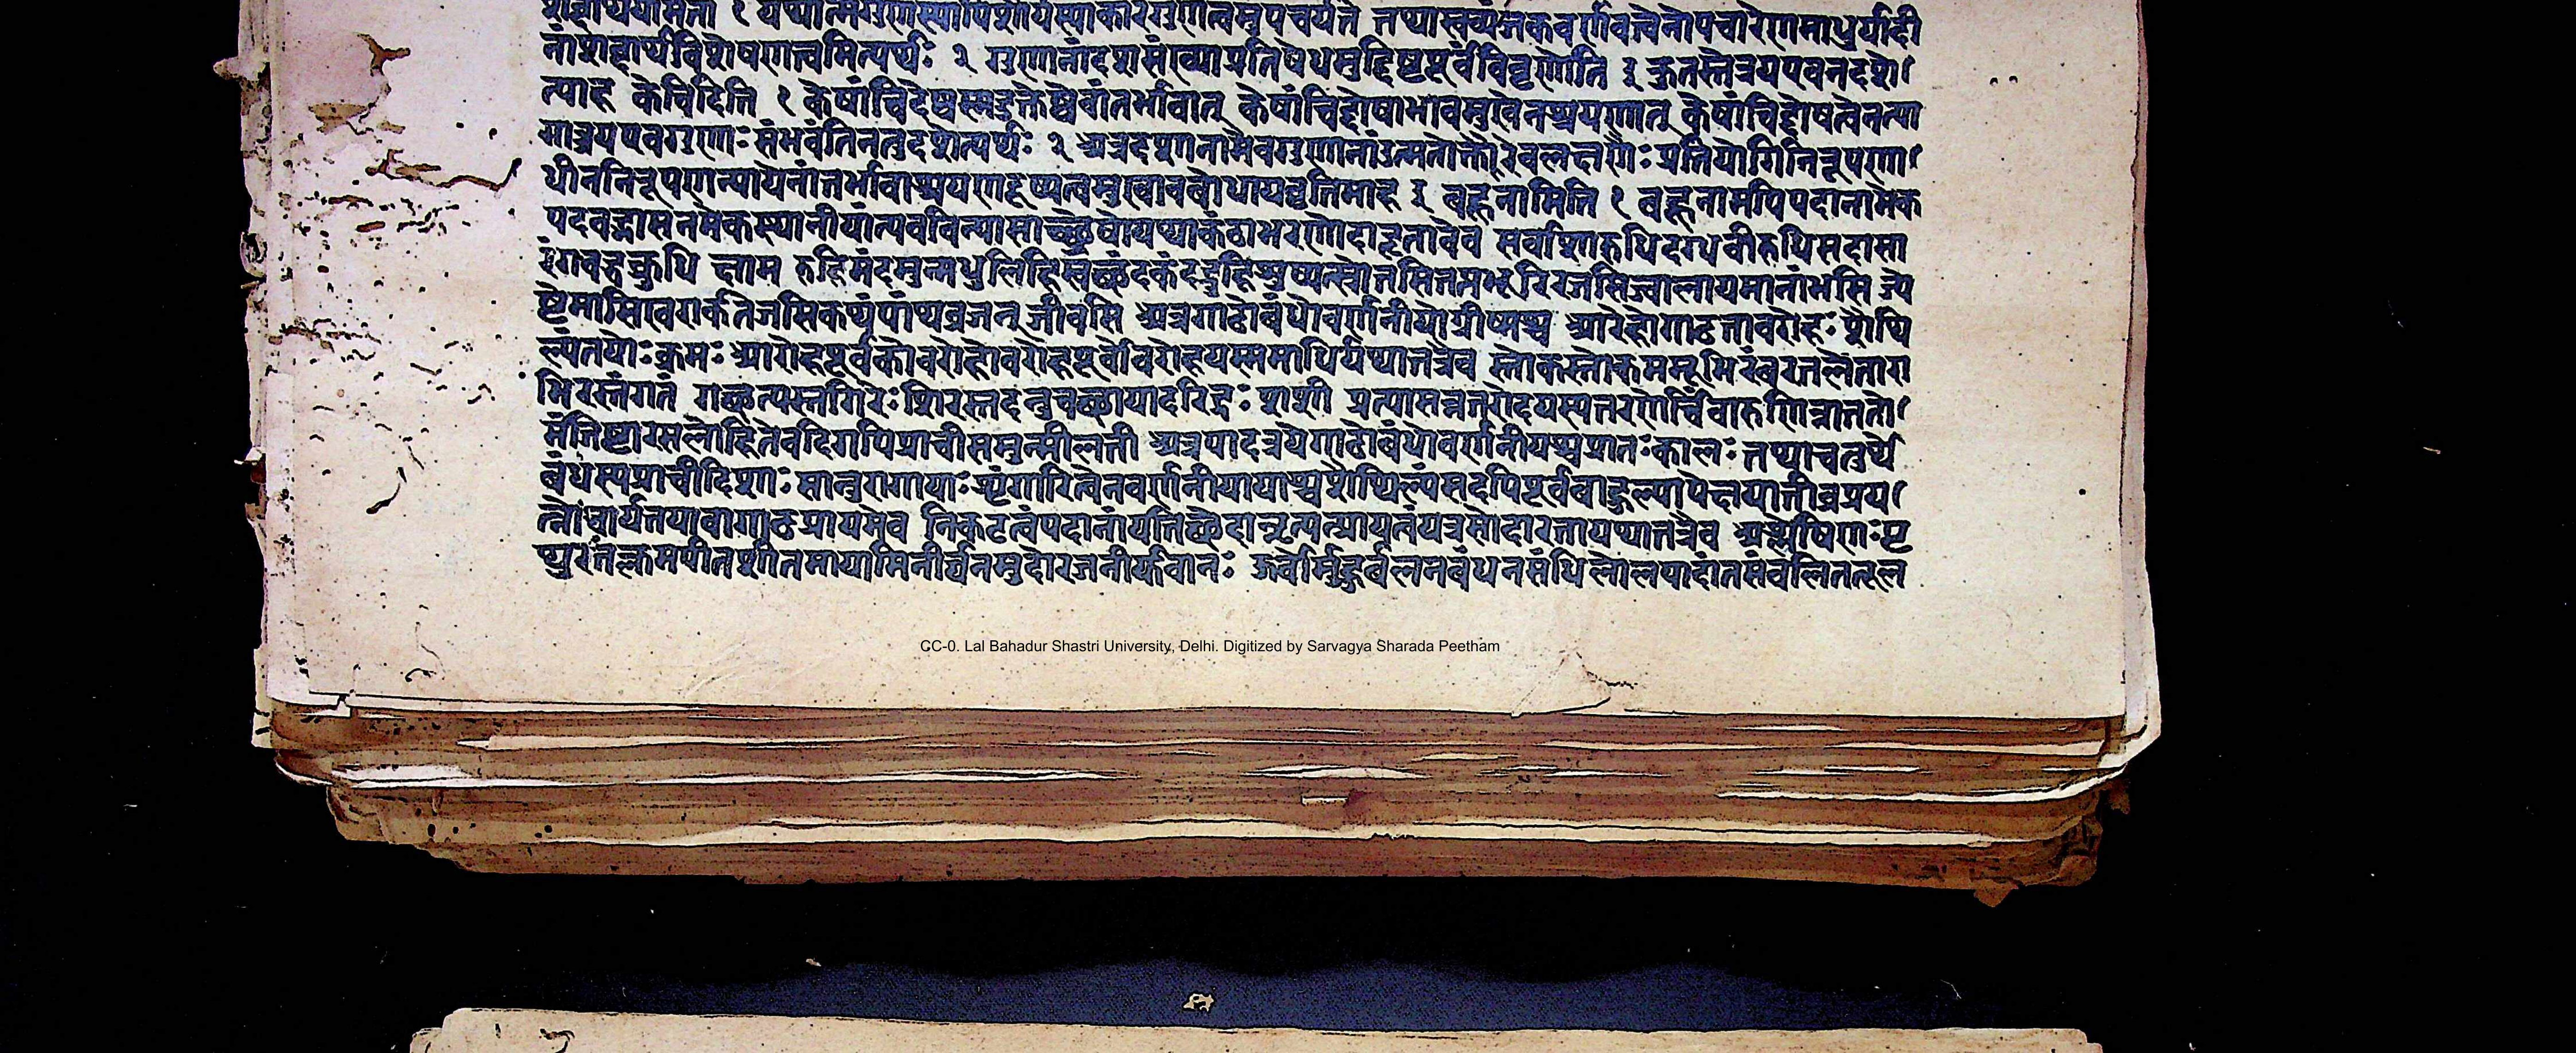 शब्दार्थयोर्मता १ यथात्मगुणस्यापिशौर्यस्याकारगुणत्वमुपचर्यते तथास्वव्यंजकवर्णवत्वेनोपचारेणमाधुर्यादी
नांशब्दार्थविशेषणत्वमित्यर्थः २ गुणानांदशसंख्याप्रतिषेधमुद्दिष्टपूर्वंविवृणोति ३ कुतस्तेत्रयएवनदशे
त्याह केचिदिति १ केषांचिदेष्वस्मदुक्तेष्वेवांतर्भावात् केषांचिद्दोषाभावमुखेनश्रयणात् केषांचिद्दोषत्वेनत्या
गात्त्रयएवगुणाः संभवंतिनतुदशेत्यर्थः २ अत्रदशानामेवगुणानांतन्मतोक्तैरेवलक्षणैः प्रतियोगिनिरूपणा
धीननिरूपणन्यायेनांतर्भावाश्रयणदूष्यत्वमुखावबोधायवृत्तिमाह ३ बहूनामिति १ बहूनामपिपदानामेक
पदवद्भासनमेकस्थानीयांत्यवर्वविन्यासाच्छ्लेषोयथाकंठाभरणोदाहृतावेव सर्वाशारुधिदग्धवीरुधिसदासा
रंगबद्धक्रुधि क्षाम रुहिमंदमुन्मधुलिहिस्वच्छंदकंदद्रुहिशुष्यत्स्रोतसितप्तभूरिरजसिज्वालायमानांभसि ज्ये
ष्ठेमासिखरार्कतेजसिकथंपांथव्रजन् जीवसि अत्रगाढोबंधोवर्णनीयोग्रीष्मश्च आरोहोगाढतावरोहः शैथि
ल्यंतयोः क्रमः आरोहपूर्वकोवरोहोवरोहपूर्वोवारोहयस्समाधिर्यथातत्रैव स्तोकस्तोकमभूमिरंबरतलेतारा
भिरस्तंगतं गच्छत्यस्तगिरेः शिरस्तदनुचच्छायादरिद्रः शशी प्रत्यासन्नतरोदयस्यतरणेर्बिंबारुणिम्नाततो
मंजिष्ठारसलोहितेवदिगपिप्राचीसमुन्मीलती अत्रपादत्रयेगाढोबंधोवर्णनीयश्चप्रातः कालः तथाचतुर्थे
बंधस्यप्राचीदिशाः सानुरागायाः शृंगारित्वेनवर्णनीयायाश्चशैथिल्यंसदपिपूर्वबाहुल्यापेक्षयातीव्रप्रय
त्नोच्चार्यतयावागाढप्रायमेव विकटत्वंपदानांयतिच्छेदान्नृत्यत्प्रायतंयत्रसोदारतायथातत्रैव अश्लेषिणः पृ
थुरतक्लमपीतशीतमायामिनीर्घनमुदोरजनीर्युवानः ऊर्वोर्मुहुर्वलनबंधनसंधिलोलपादांतसंवलिततूल
CC-0. Lal Bahadur Shastri University, Delhi. Digitized by Sarvagya Sharada Peetham